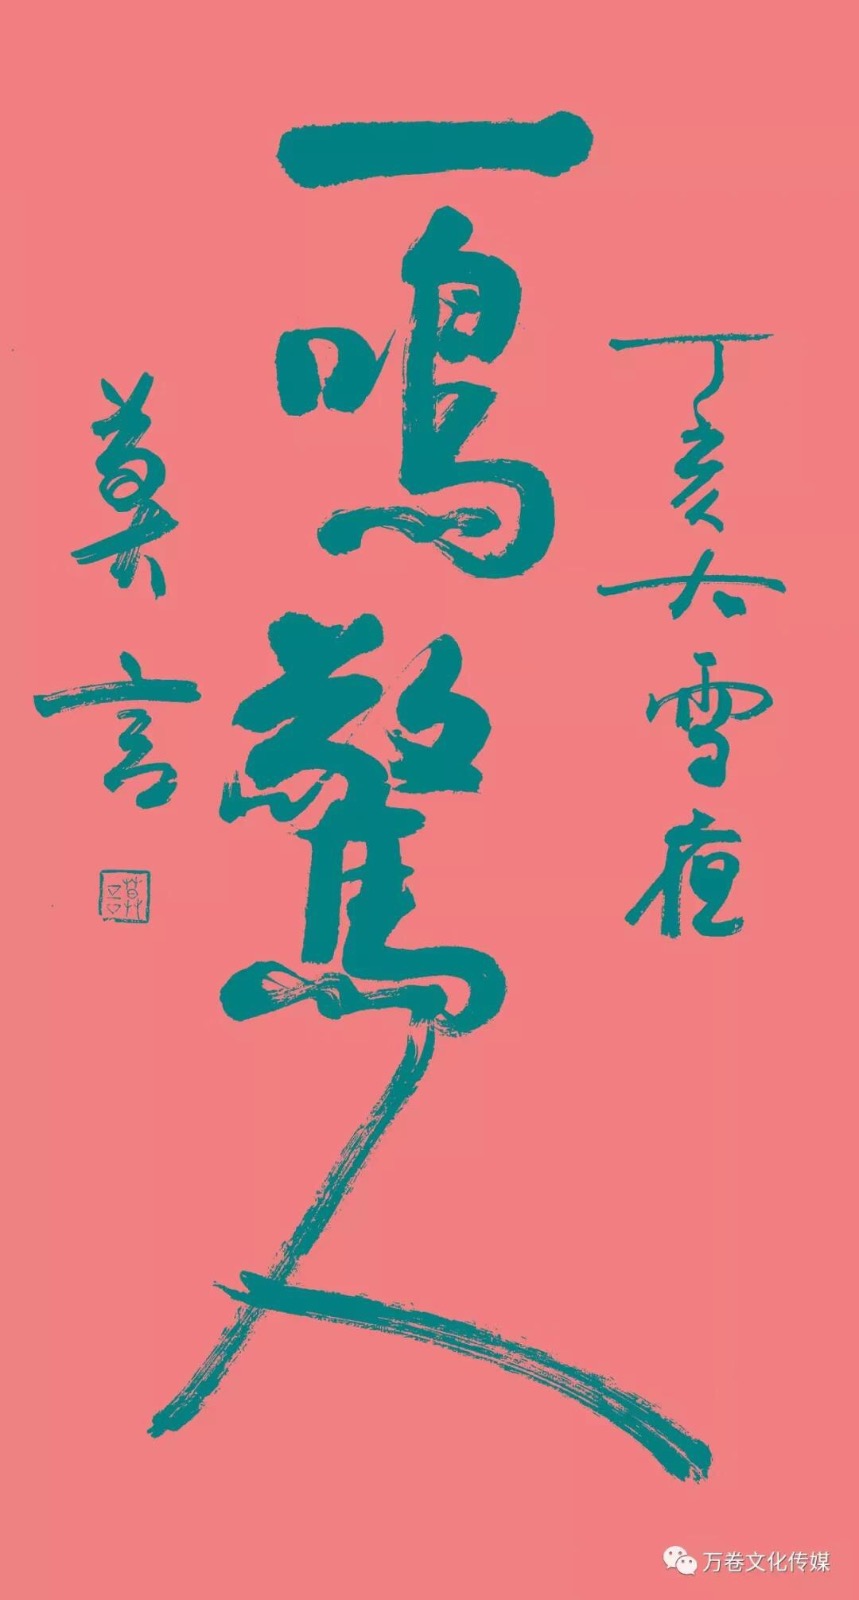 丁亥大雪夜
一鸣驚人
莫言
莫言
万卷文化传媒